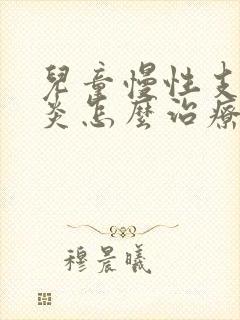 兒童慢性支
炎怎麼治療
穆晨曦